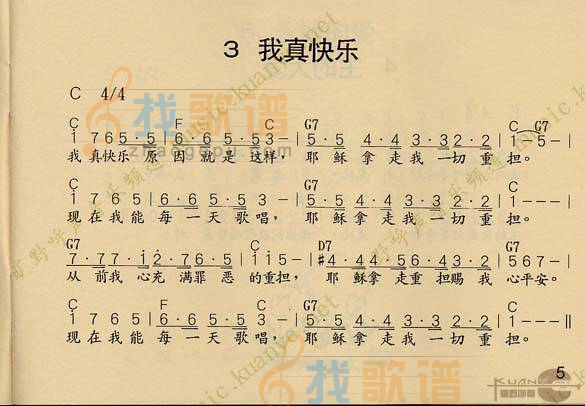 3 我真快乐
C 4/4
C F C G7 C G7
1 7 6 5·5|6·6 5·5 3-|5·5 4·4 3·3 2·2|1 5-|
我真快乐 原因就是这样，耶稣拿走我一切重担。
C F C G7 C
1 7 6 5|6·6 5·5 5 3-|5·5 4·4 3·3 2·2|1---|
现在我能每一天歌唱，耶稣拿走我一切重担。
G7 C D7 G7
7·7 7·1 2·7 6·5|1 1 5-|#4·4 4·4 6·4 3·2|5 6 7-|
从前我心充满罪恶的重担，耶稣拿走重担赐我心平安。
C F C G7 C
1 7 6 5|6·6 5·5 5 3-|5·5 4·4 3·3 2·2|1---‖
现在我能每一天歌唱，耶稣拿走我一切重担。
5
找歌谱
zhaogepu.com
找歌谱
旷野呼声音乐频道 music.kuanye.net
KUANYE
旷野呼声